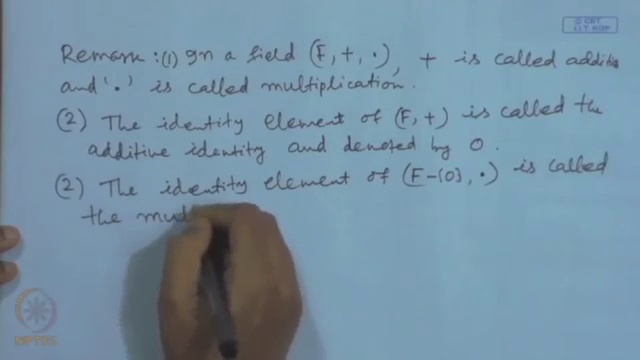 © CET
I.I.T. KGP
Remark : (1) In a field (F, +, ·), + is called additio
and '·' is called multiplication.
(2) The identity element of (F, +) is called the
additive identity and denoted by 0.
(2) The identity element of (F-{0}, ·) is called
the mul
NPTEL